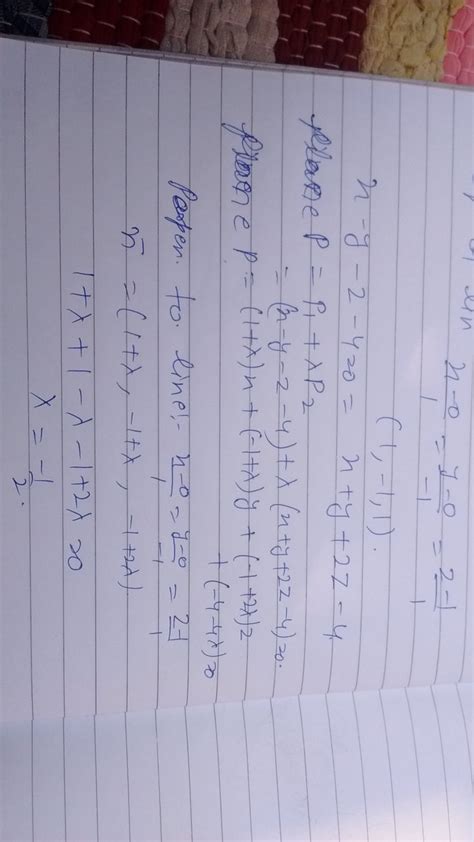 x-0/1 = y-0/-1 = z-1/1
(1, -1, 1).
x-y-z-4=0 = x+y+2z-4
Plane P = P1 + λP2
= (x-y-z-4)+λ(x+y+2z-4)=0.
Plane P = (1+λ)x + (-1+λ)y + (-1+2λ)z
+(-4-4λ)=0
to line:- x-0/1 = y-0/-1 = z-1/1
n̄ = (1+λ, -1+λ, -1+2λ)
1+λ+1-λ-1+2λ=0
λ = -1/2.